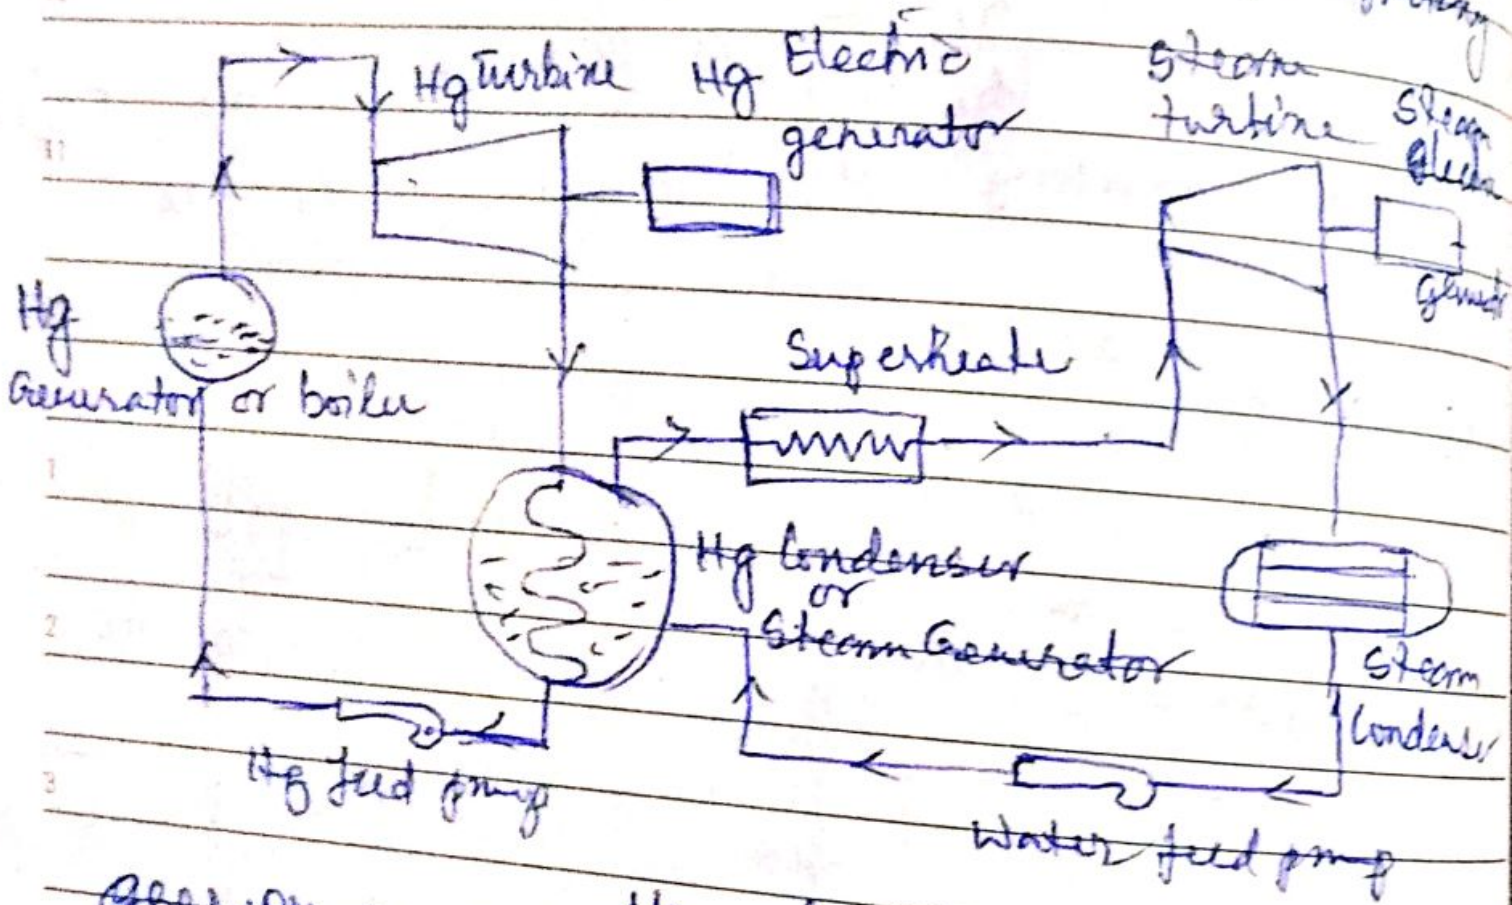 Hg Turbine
Hg Electric
generator
Steam
turbine
Steam
Hg
Generator or boiler
Superheate
Hg Condenser
or
Steam Generator
Steam
Condenser
Hg feed pump
Water feed pump